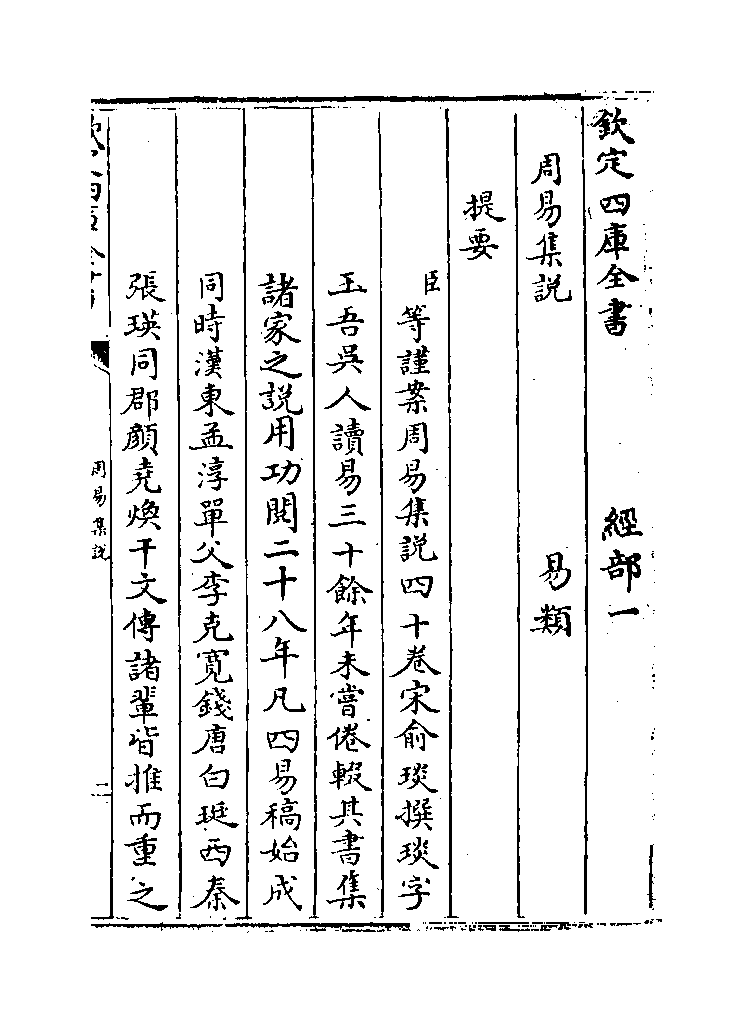 欽定四庫全書　經部一
周易集説　易類
提要
臣等謹案周易集説四十卷宋俞琰撰琰字
玉吾吳人讀易三十餘年未嘗倦輟其書集
諸家之説用功閱二十八年凡四易稿始成
同時漢東孟淳單父李克寛錢唐白珽西秦
張瑛同郡顔堯煥干文傳諸輩皆推而重之
周易集説
二